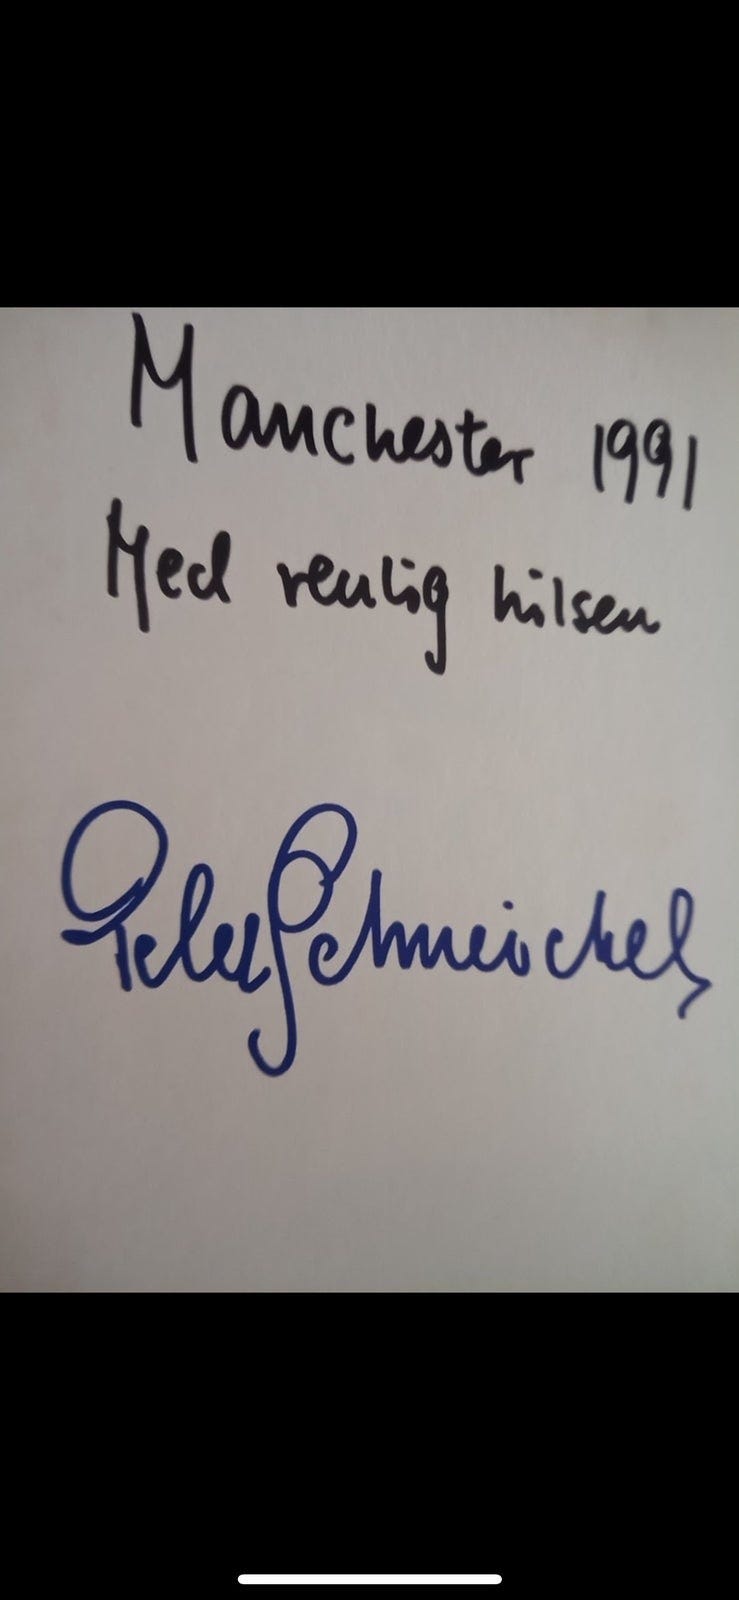 Manchester 1991
Med venlig hilsen
Peter Schmeichel